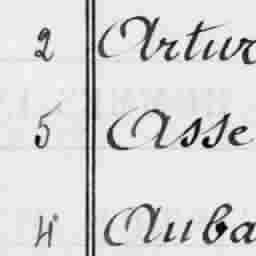 2 Artur
5 Asse
4 Auba